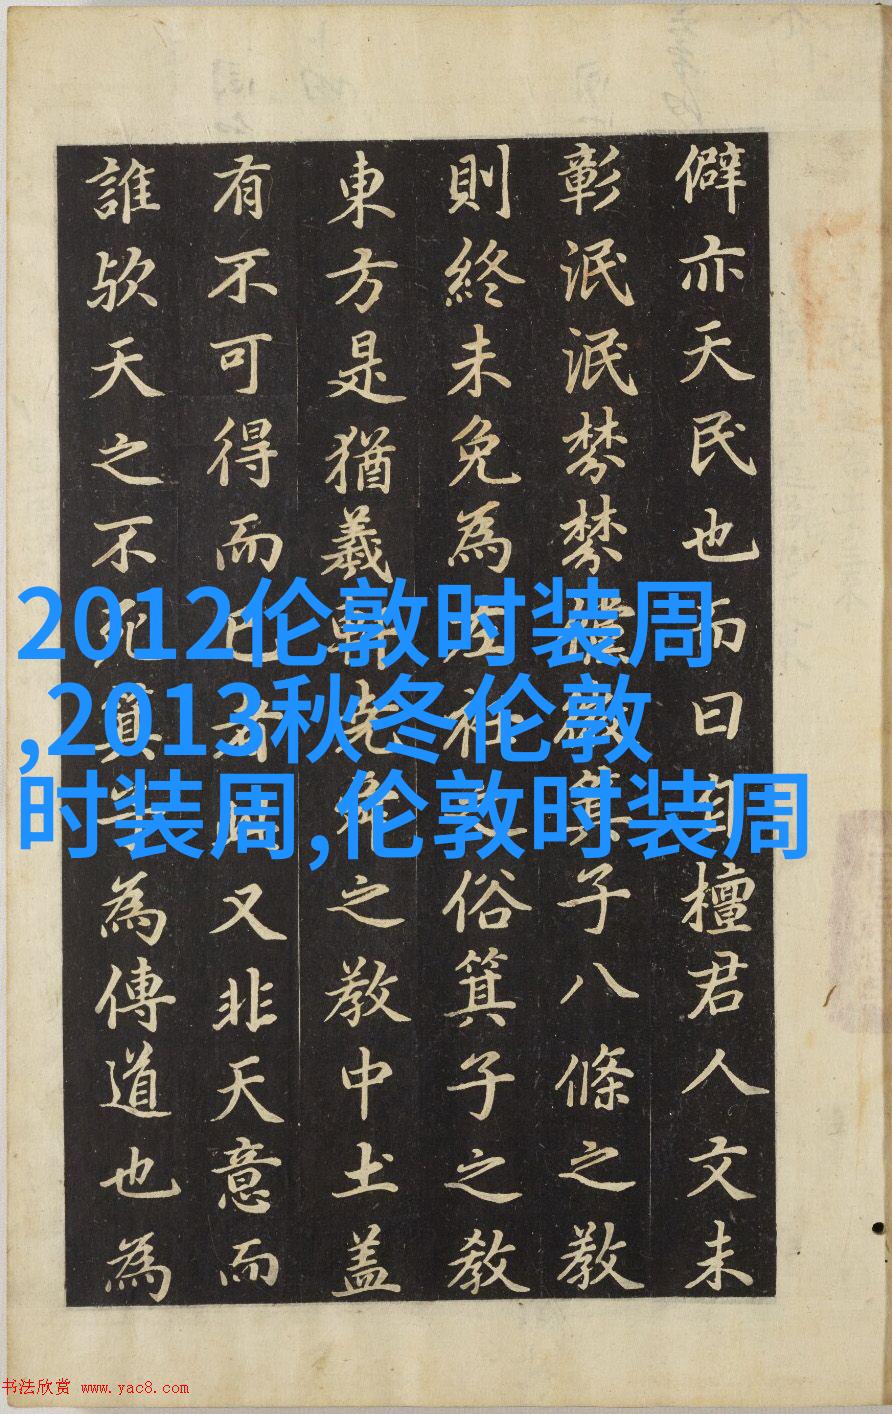 2012伦敦时装周
,2013秋冬伦敦
时装周,伦敦时装周
僻亦天民也而曰自檀君人文未
彰泯泯棼棼儻微箕子八條之教
則終未免為左衽之俗箕子之教
東方是猶羲軒堯舜之教中土盖
有不可得而已又非天意而
誰欤天之不死箕子為傳道也為
书法欣赏 www.yac8.com